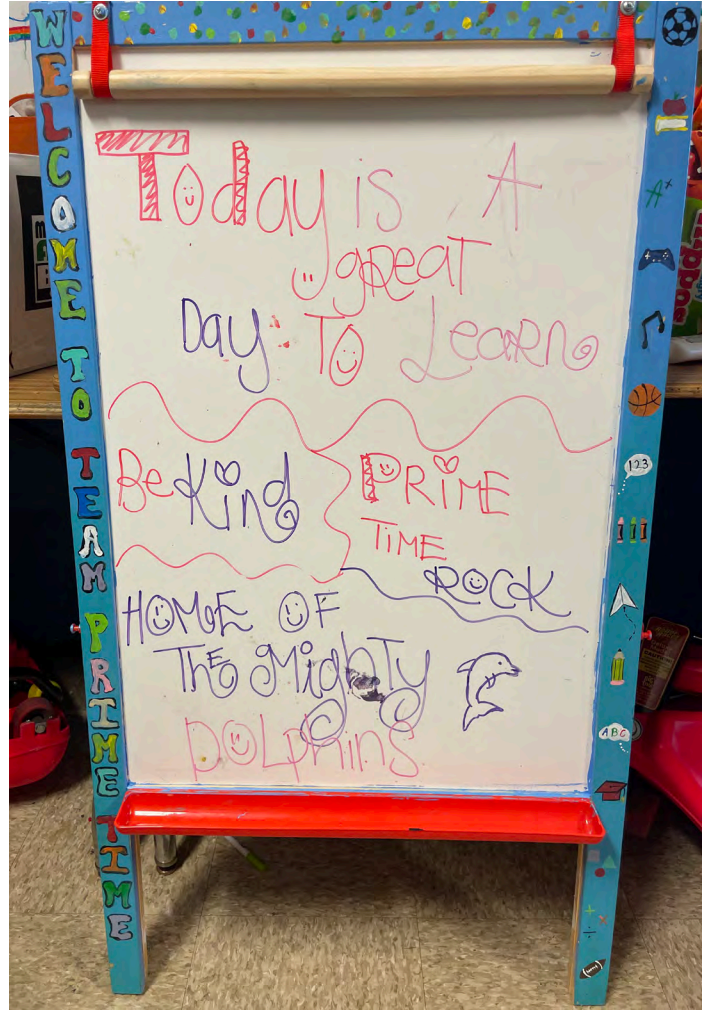 WELCOME TO TEAM PRIME TIME
Today is A
great
Day To Learn
Be Kind
PRIME
TIME
ROCK
HOME OF
The Mighty
DOLPHINS
A+
123
ABC